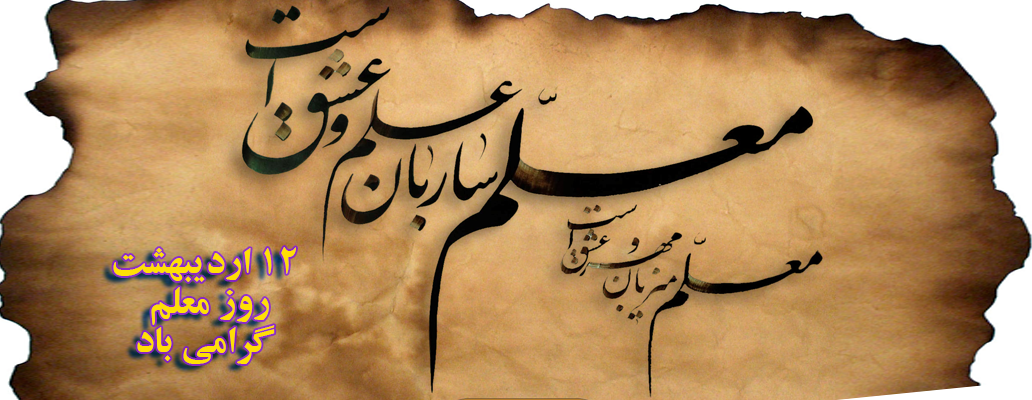 معلّم ساربان علم و عشق است
معلّم میزبان مهر و عشق است
۱۲ اردیبهشت
روز معلم
گرامی باد